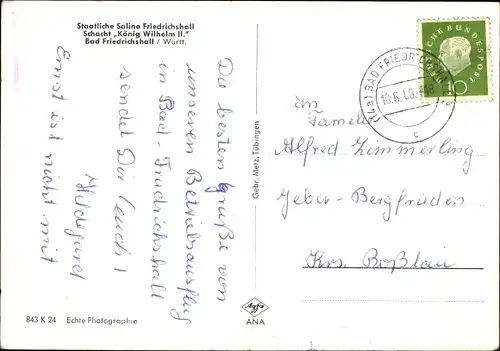 Staatliche Saline Friedrichshall
Schacht „König Wilhelm II."
Bad Friedrichshall / Württ.
Die besten Grüße von
unserem Betriebsausflug
in Bad-Friedrichshall
sendet Dir (euch)
Hildegard
Ernst ist nicht mit
843 K 24 Echte Photographie
Gebr. Metz, Tübingen
Agfa
ANA
DEUTSCHE BUNDESPOST
10
(14a) BAD FRIEDRICHSHALL
10.6.60.
c
An
Familie
Alfred Zimmerling
Weber-Bergfrieden
Krs. Roßlau